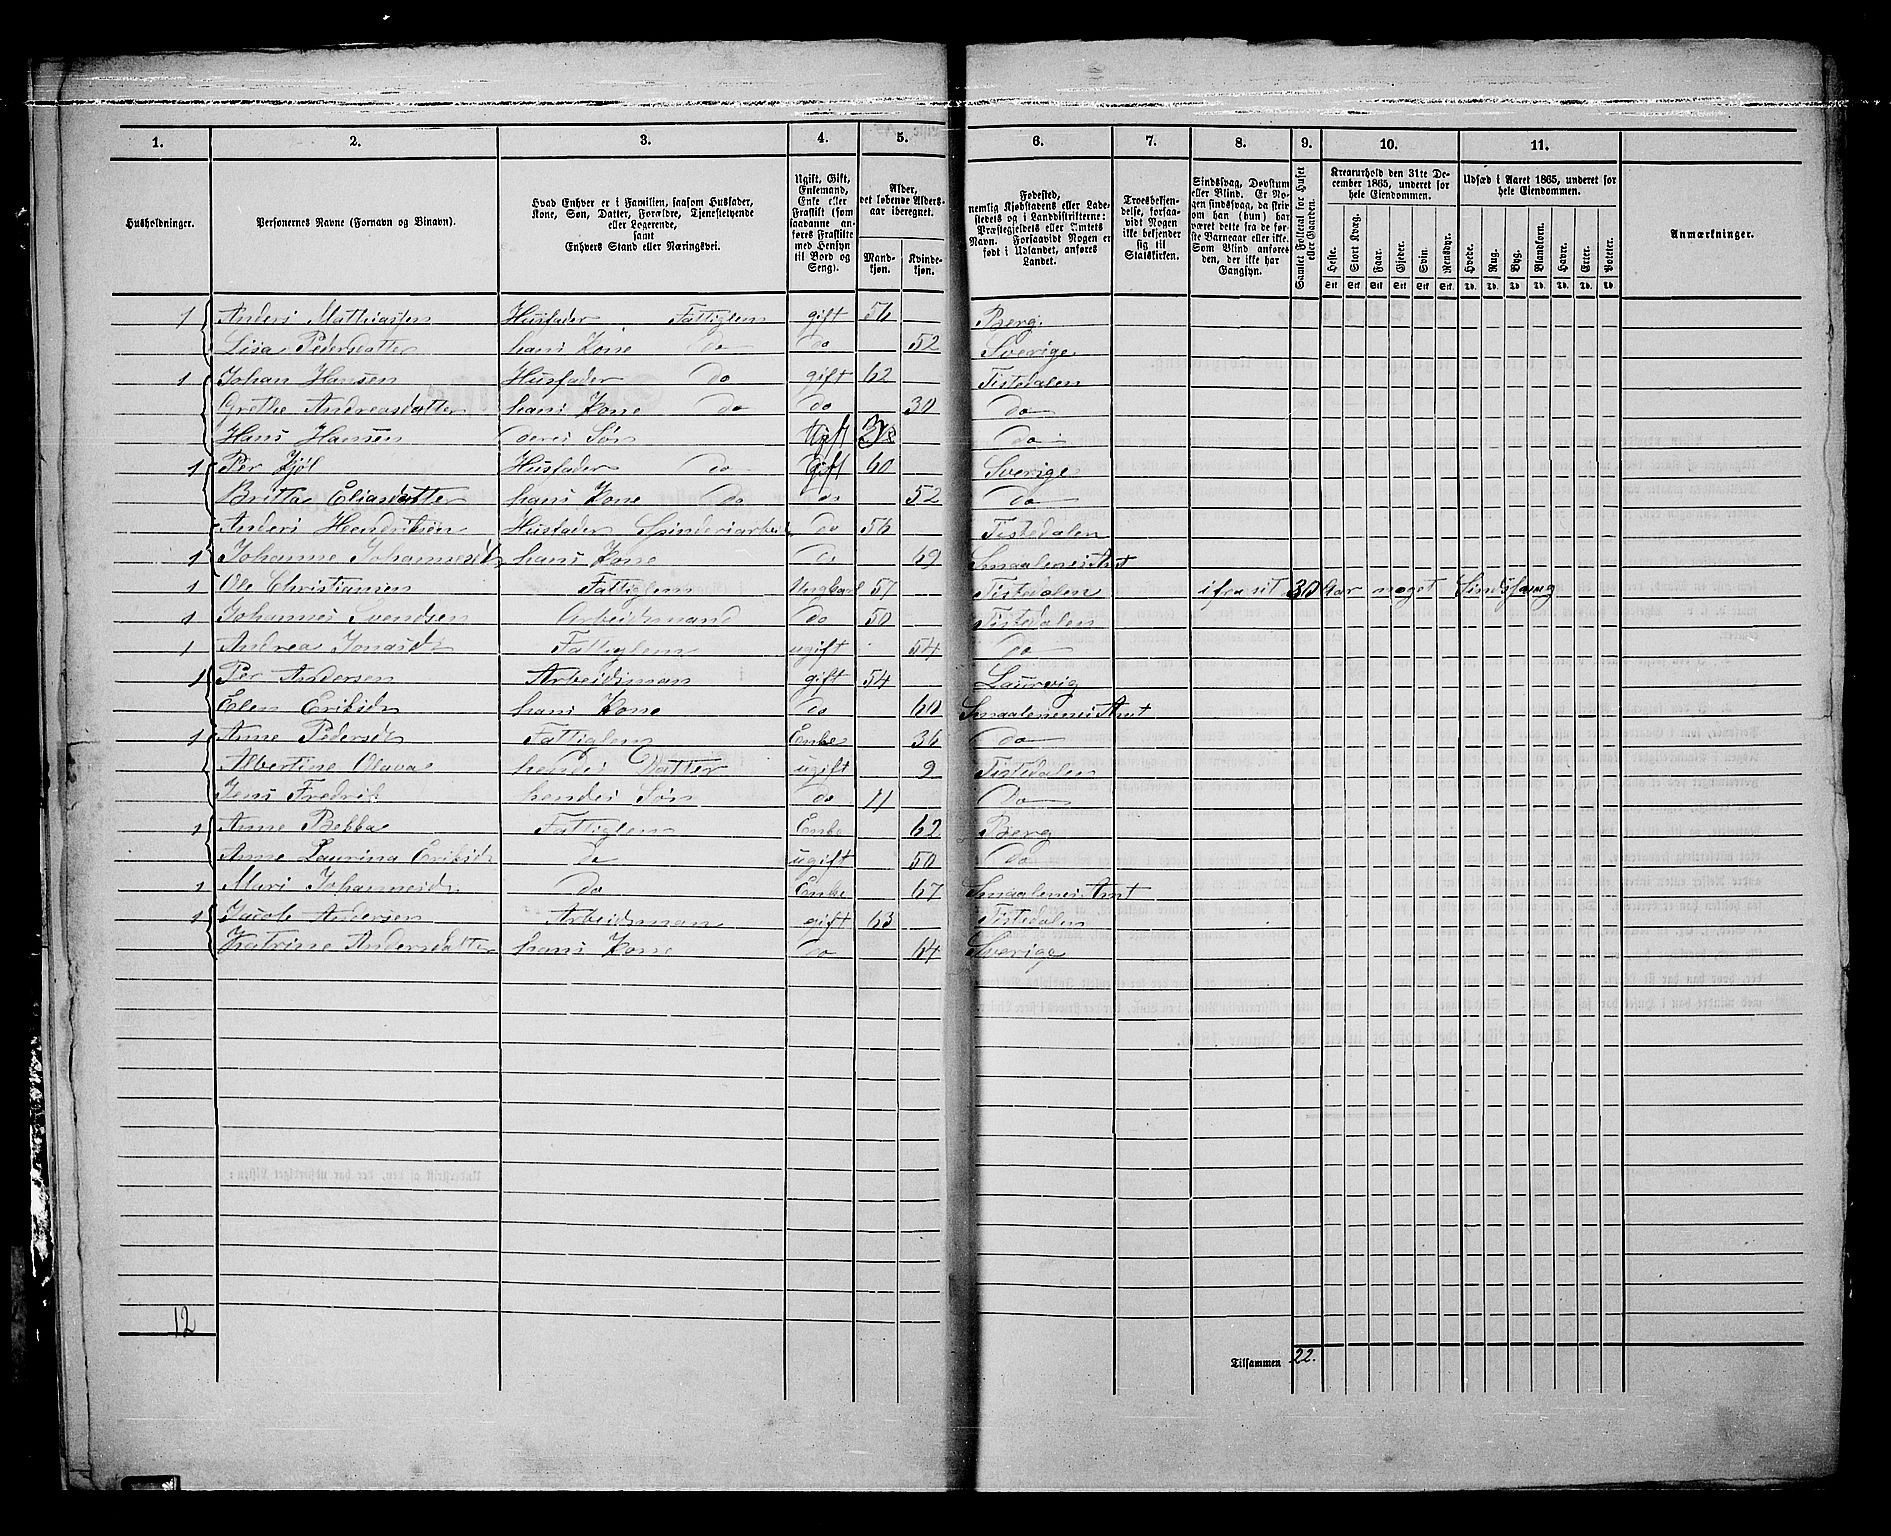 1. 2. 3. 4. 5. 6. 7. 8. 9. 10. 11.
Husholdninger.
Personernes Navne (Fornavn og Binavn).
Hvad Enhver er i Familien, saasom Husfader, Kone, Søn, Datter, Forældre, Tjenestetyende eller Logerende, samt Enhvers Stand eller Næringsvei.
Ugift, Gift, Enkemand, Enke eller Fraskilt (som saadanne anføres Fraskilte med Hensyn til Bord og Seng).
Alder, det løbende Aldersaar iberegnet.
Mandkjøn. Kvindekjøn.
Fødested, nemlig Kjøbstadens eller Ladestedets og i Landdistrikterne: Præstegjeldets eller Amtets Navn. Forsaavidt Nogen er født i Udlandet, anføres Landet.
Troesbekjendelse, forsaavidt Nogen ikke bekjender sig til Statskirken.
Sindssvag, Døvstum eller Blind. Er Nogen sindssvag, da skrives om han (hun) har været dette fra de første Barneaar eller ikke. Som Blind anføres den, der ikke har Gangsyn.
Samlet Folketal for Huset eller Gaarden.
Kreaturhold den 31te December 1865, underet for hele Eiendommen.
Heste. Stort Kvæg. Faar. Gjeder. Svin. Rensdyr.
Udsæd i Aaret 1865, underet for hele Eiendommen.
Hvede. Rug. Byg. Blandkorn. Havre. Erter. Poteter.
Anmærkninger.
Stk Stk Stk Stk Stk Stk Td. Td. Td. Td. Td. Td. Td.
1 Anders Mathiassen Husfader Fattiglem gift 56 Berg.
Lisa Pedersdatter hans Kone do do 52 Sverige
1 Johan Hansen Husfader do gift 62 Tistedalen
Grethe Andreasdatter hans Kone do do 30 do
Hans Hansen deres Søn Ugift do
1 Per Kjøl Husfader do gift 60 Sverige
Britta Eliasdatter hans Kone do do 52 do
Anders Hendriksen Husfader Spinderiarbeid do 56 Tistedalen
1 Johanne Johannesd hans Kone do 69 Smaalenenes Amt
1 Ole Christiansen Fattiglem Ungkarl 57 Tistedalen ifra sit 30 Aar noget Sindssvag
1 Johannes Svendsen Arbeidsmand do 50 Tistedalen
1 Andrea Jonasdr Fattiglem ugift 54 do
1 Per Andersen Arbeidsman gift 54 Laurvig
Elen Eriksdr hans Kone do 60 Smaalenenes Amt
1 Anne Pedersd Fattiglem Enke 36 do
Albertine Olava hendes Datter ugift 9 Tistedalen
Jens Fredrik hendes Søn do 11 do
1 Anne Bekka Fattiglem Enke 62 Berg
Anne Laurina Eriksdr do ugift 50 do
1 Mari Johannesdr do Enke 67 Smaalenenes Amt
1 Jacob Andersen Arbeidsman gift 63 Tistedalen
Katrine Andersdatter hans Kone do 64 Sverige
12
Tilsammen 22.